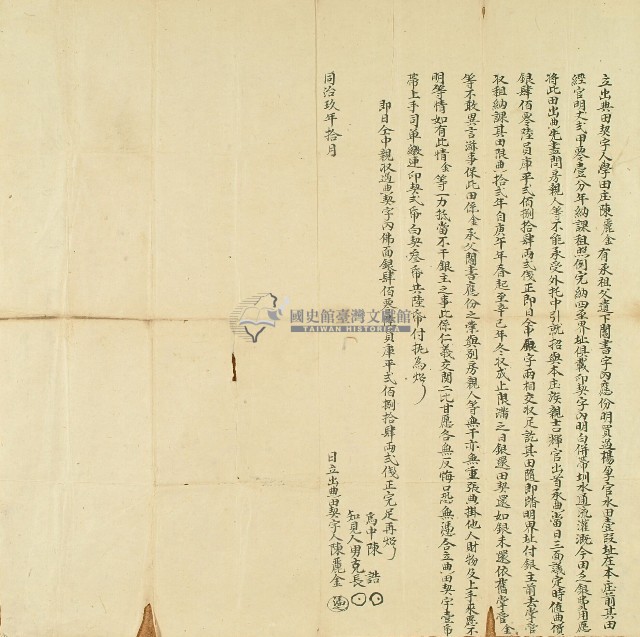 立出典田契字人學田庄陳麗金有承祖父遺下鬮書字內應份明買過楊 官水田壹段址在本庄前其田
經官明丈弍甲零壹分年納課租照例完納四至界址俱載印契字內明白併帶圳水通流灌溉今因乏銀費用應
將此田出典先盡問房親人等不能承受外托中引就招與本庄族親吉輝官出首承典當日三面議定時值典價
銀肆佰零陸員庫平弍佰捌拾肆兩弍錢正即日全中 字兩相交收足訖其田隨即踏明界址付銀主前去掌管
收租納課其田限典拾弍年自庚午年春起至辛巳年冬收成止限滿之日銀還田契還如銀未還依舊掌管金
等不敢異言滋事保此田係金承父鬮書應份之業與別房親人等無干亦無重張典掛他人財物及上手來歷不
明等情如有此情金等一力抵當不干銀主之事此係仁義交關二比甘愿各無反悔口恐無憑合立典田契字壹帋
帶上手司單繳連印契弍帋白契叁帋共陸帋付執為炤
即日全中親收過典契字內佛面銀肆佰零陸員庫平弍佰捌拾肆兩弍錢正完足再炤
為中陳 誥
知見人男克長
同治玖年拾月 日立出典田契字人陳麗金
國史館臺灣文獻館
TAIWAN HISTORICA